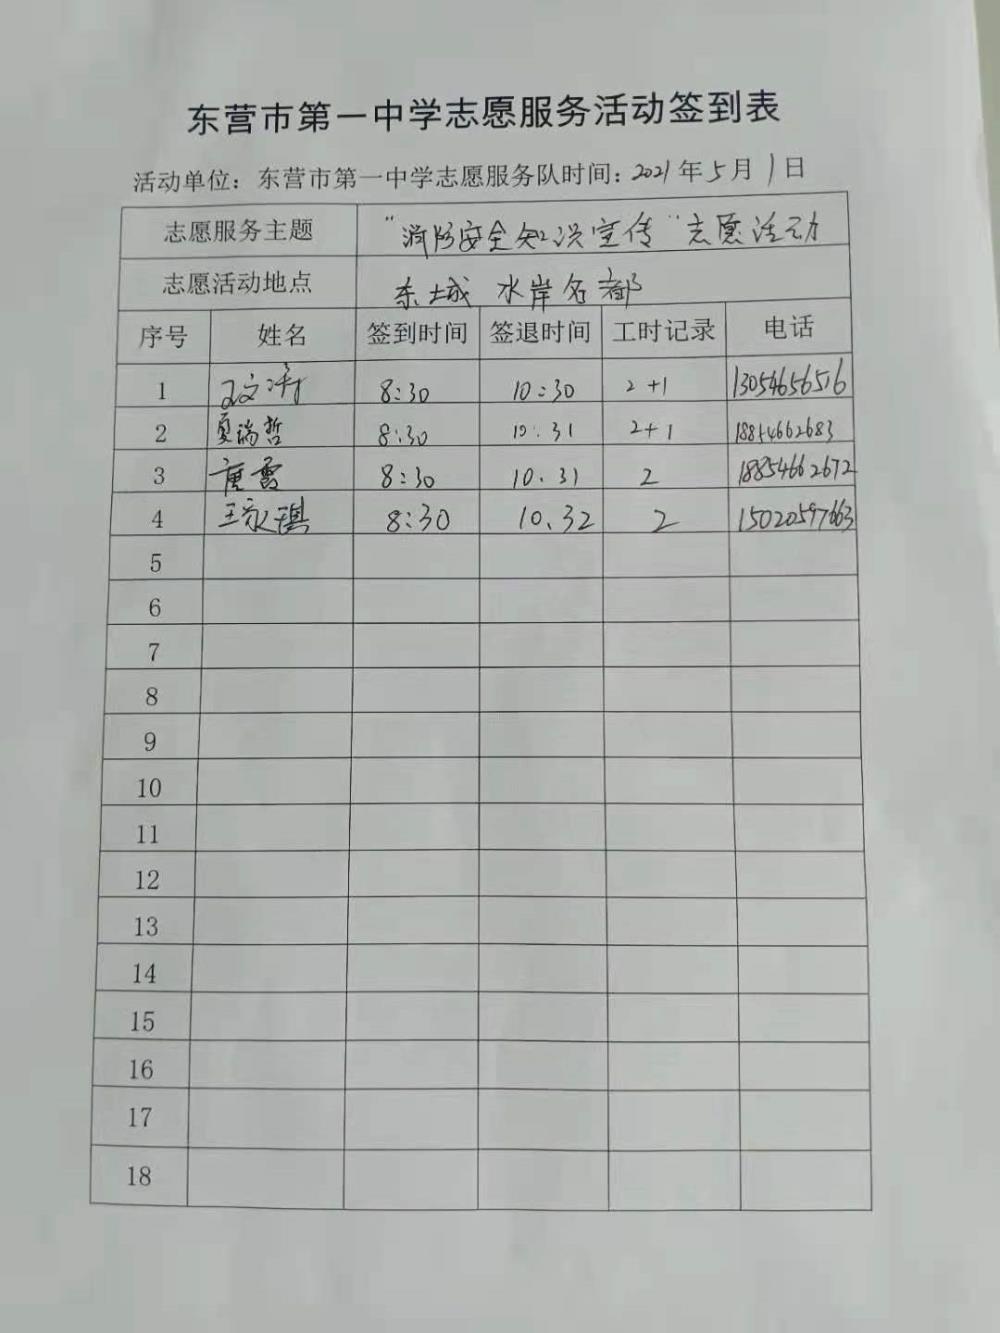 东营市第一中学志愿服务活动签到表
活动单位：东营市第一中学志愿服务队时间：2021年5月1日
志愿服务主题 “消防安全知识宣传”志愿活动
志愿活动地点 东城 水岸名都
序号 姓名 签到时间 签退时间 工时记录 电话
1 8:30 10:30 2+1 13054656516
2 夏瑞哲 8:30 10:31 2+1 18854662683
3 唐雪 8:30 10.31 2 18854662672
4 王永琪 8:30 10.32 2 15020597663
5
6
7
8
9
10
11
12
13
14
15
16
17
18